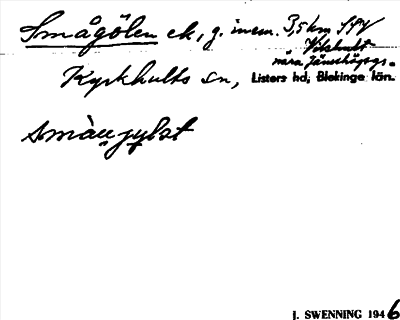 Smågölen ek, g. inom. 3,5 km SSV
Vilshult
nära Jämshögsgr.
Kyrkhults sn, Listers hd, Blekinge län.
smàu jylst
J. SWENNING 1946